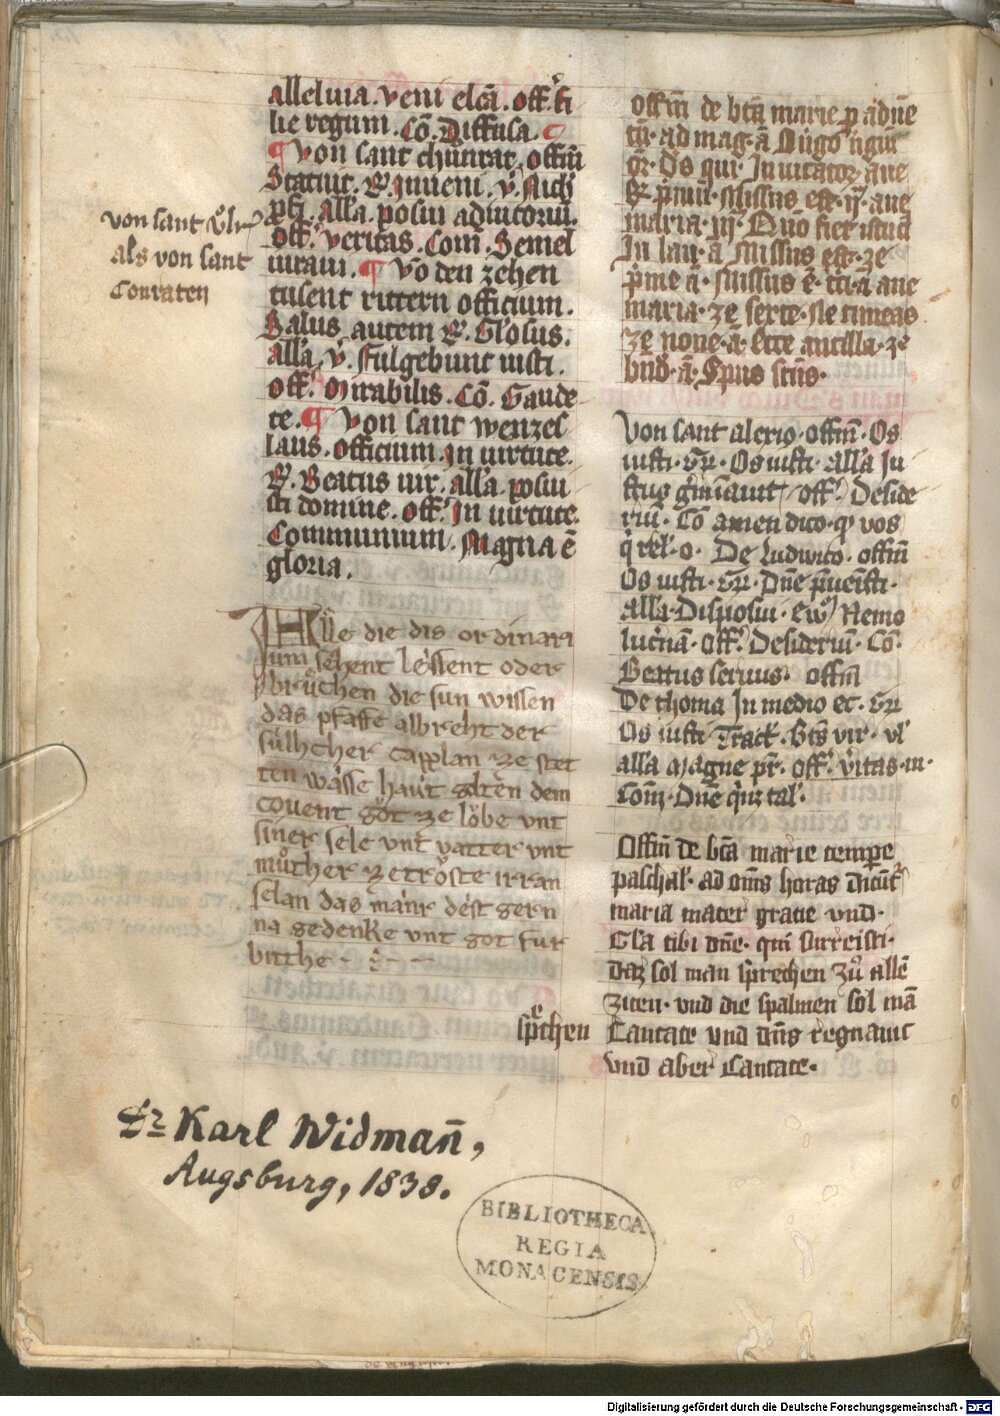 alleluia. veni elcā. off. fi
lie regum. Cō. Diffusa.
¶ von sant chūnrat. offm̄
Statuit. Et Inveni. v̄. Nich̄
alla. posui adiutoriū.
off. veritas. Com̄. Semel
iuravi. ¶ Vō den zehen
tusent rittern officium.
Salus autem Gr̄. Glosus.
all'a. v̄. Fulgebunt iusti.
off. Mirabilis. Cō. Gaude
te. ¶ Von sant wenzes
laus. officium. In uirtute.
Gr̄. Beatus uir. all'a. posui
sti domine. off. In uirtute.
Communium. Magna ē
gloria.
von sant v̊lr
als von sant
Conraten
Alle die dis ordinari
um sehent lesent oder
brůchen die sun wissen
das pfaffe albreht der
sulhcher capplan ze stet
ten wasse haut geben dem
covent got ze löbe vnt
siner sele vnt vatter vnt
můther ze tröste irran
selan das man̄r dest gern
na gedenke vnt got fur
bitthe
offm̄ de btā marie p aduē
ad mag. ā
Inuitator aue
Missus est. ij. aue
maria. iij. Quō fiet istud
In lau. ā Missus est. ze
p̄me ā. Missus ē. ā aue
maria. ze sexte. Ne timeas
ze none. ā. Ecce ancilla. ze
ā. Spūs scūs.
Von sant alexio. offm̄. Os
iusti. Gr̄. Os iusti. all'a Ju
stus gmiauit off. Deside
riū. Cō amen dico. q vos
q rel. o. De Ludwico. offm̄
Os iusti. Gr̄. Dn̄e p̄uenisti.
all'a. Disposui. Ew̄ Nemo
lucnā. off. Desideriū. Cō.
Beatus seruus. offm̄
De thoma In medio ec. Gr̄
Os iusti Tract. Bt̄s vir. vl
all'a Magne pr̄. off. v̄itas. m.
Com̄. Dn̄e qnz tal.
Offm̄ de btā marie tempe
paschal. ad om̄s horas dicūt
maria mater gratie vnd.
Gl'a tibi dn̄e. qui surrexisti.
daz sol man sprechen zů allē
ziten. vnd die psalmen sol mā
sp̊chen Cantate vnd dn̄s regnauit
vnd aber Cantate.
Dr Karl Widman̄,
Augsburg, 1838.
BIBLIOTHECA
REGIA
MONACENSIS
Digitalisierung gefördert durch die Deutsche Forschungsgemeinschaft - DFG